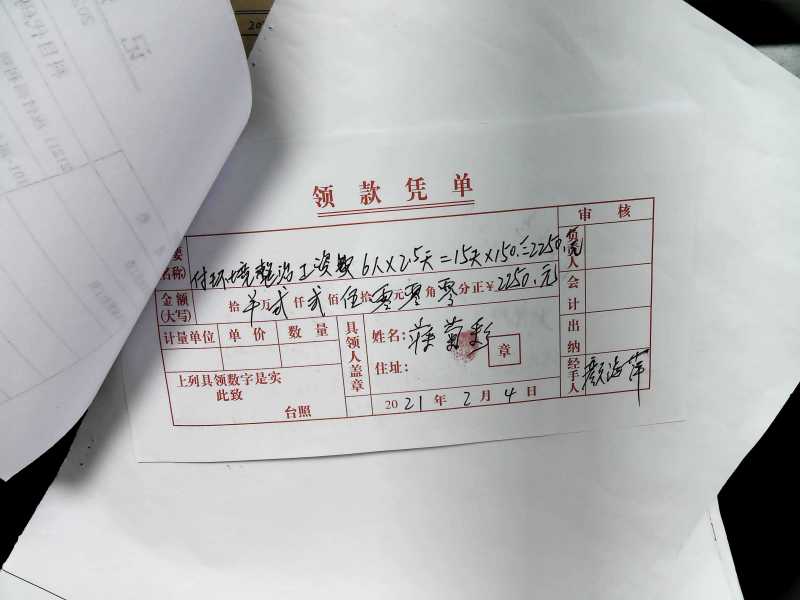 领款凭单
审核
要
名称)
付环境整治工资款 6人×2.5天=15天×150.=2250.元
负责人
金额
(大写)
拾 万 贰 仟 贰 佰 伍 拾 零 元 零 角 零 分 正 ¥ 2250.元
会计
计量单位 单价 数量
具领人盖章
姓名:
菊彩
章
住址:
出纳
上列具领数字是实
此致
台照
2021 年 2 月 4 日
经手人
颜海萍